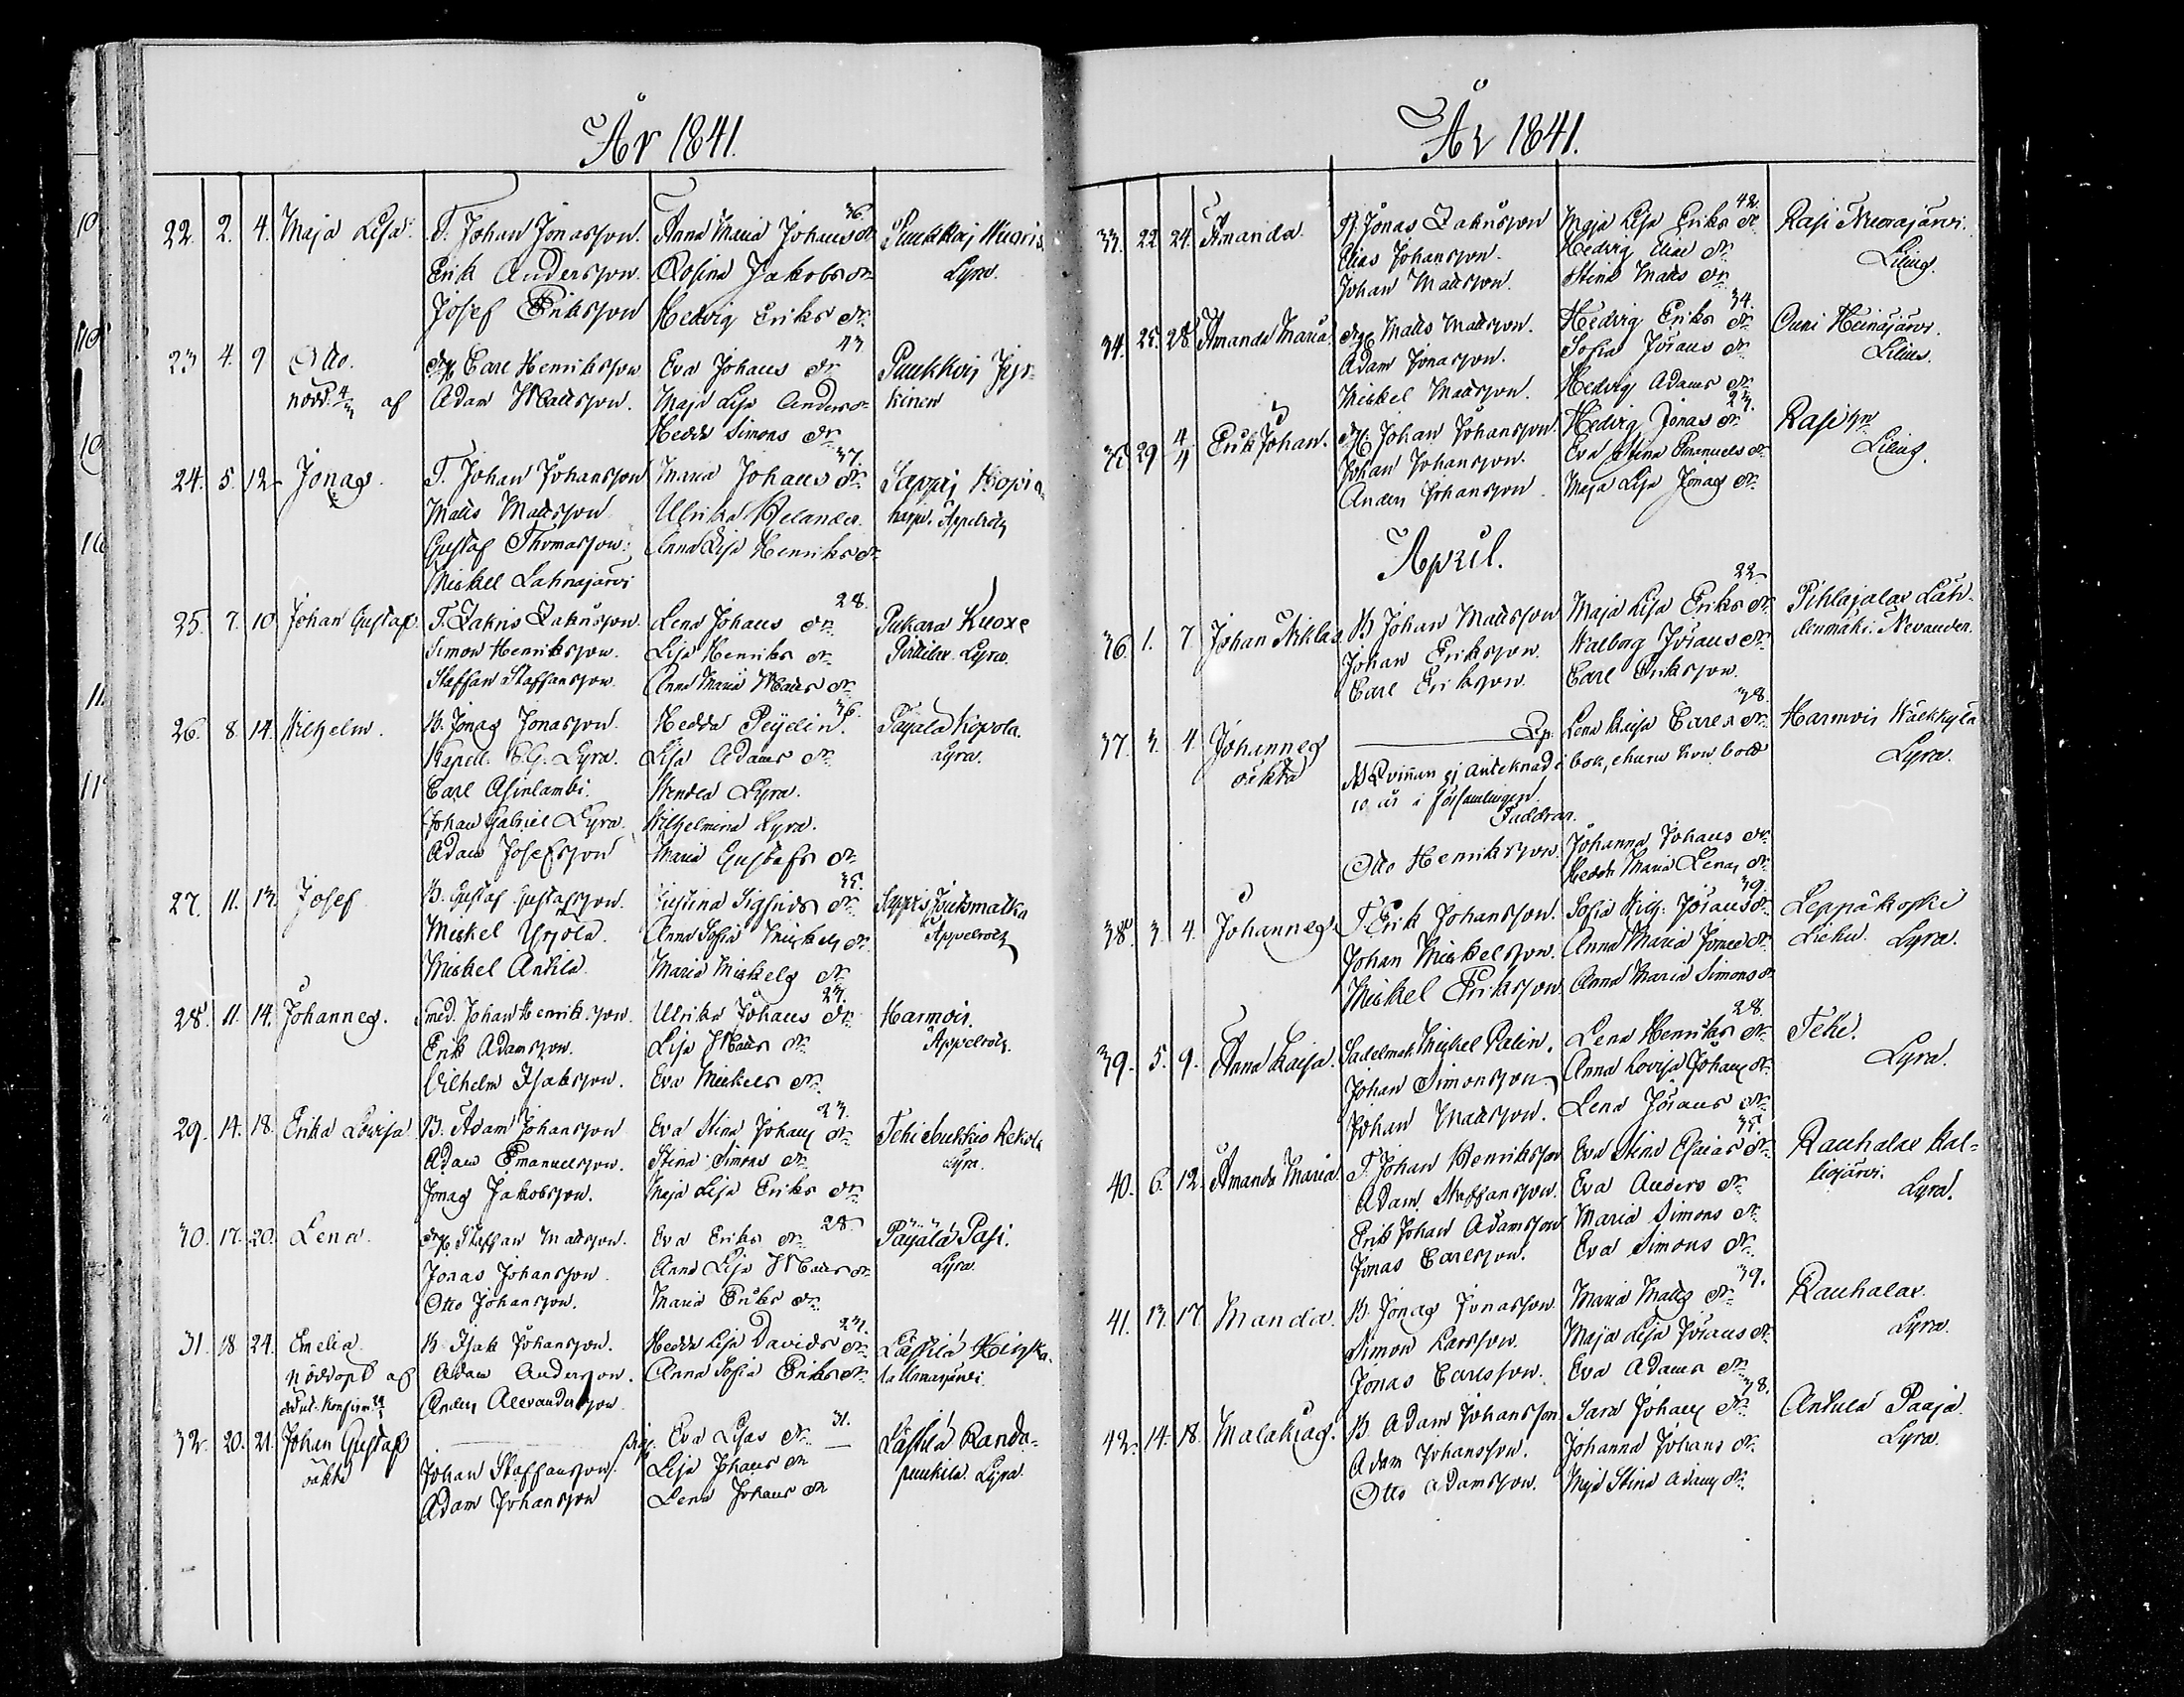 År 1841.
22. 2. 4. Maja Lisa. T. Johan Jonasson. Anna Maria Johans dr 36. Puukkoj Wuoris
Erik Andersson. Rosina Jakobs dr Lyra.
Josef Eriksson Hedvig Eriks dr
23 4. 9 Otto. Carl Henriksson Eva Johans dr 43. Puukkoj
nödd. af Adam Mattsson. Maja Lisa Anders dr kinen
Hedda Simons dr
24. 5. 12 Jonas. T. Johan Johansson Maria Johans dr 37.
Matts Mattsson Ulrika Helander. Appelroth
Gustaf Thomasson. Anna Lisa Henriks dr
Mickel Lahnajärvi
25. 7. 10 Johan Gustaf. T. Zakris Zakrisson. Lena Johans dr 28. Pukara
Simon Henriksson. Lisa Henriks dr Lyra.
Staffan Staffansson. Anna Maria Matts dr
26. 8. 14. Wilhelm. B. Jonas Jonasson. Hedda Peijelin. 36. Päyälä
Kapell. E.G. Lyra. Lisa Adams dr Lyra.
Carl Asinlambi. Wendla Lyra.
Johan Gabriel Lyra. Wilhelmina Lyra.
Adam Josefsson Maria Gustafs dr
27. 11. 13. Josef B. Gustaf Gustafsson. Justina Sigfrids dr 35.
Mickel Yrjölä. Anna Sofia Mickels dr Appelroth
Mickel Anttila. Maria Mickels dr
28. 11. 14. Johannes. Smed. Johan Henriksson. Ulrika Johans dr 23. Harmois.
Erik Adamsson. Lisa Matts dr Appelroth.
Wilhelm Isaksson. Eva Mickels dr
29. 14. 18. Erika Lovisa B. Adam Johansson Eva Stina Johans dr 23. Tehi
Adam Emanuelsson. Stina Simons dr Lyra.
Jonas Jakobsson. Maja Lisa Eriks dr
30. 17. 20. Lena. Staffan Mattsson. Eva Eriks dr 28. Päyälä Pasi.
Jonas Johansson Anna Lisa Matts dr Lyra.
Otto Johansson. Maria Eriks dr
31. 18. 24. Emelia. B. Isak Johansson. Hedda Lisa Davids dr 23. Lässilä
nöddöpt af Adam Andersson. Anna Sofia Eriks dr
Anders Alexandersson
32. 20. 21. Johan Gustaf Eva Elias dr 31. Lässilä Randa-
oäkta Johan Staffansson. Lisa Johans dr Lyra.
Adam Johansson Lena Johans dr
År 1841.
33. 22. 24. Amanda. Jonas Zakrisson Maja Lisa Eriks dr 42. Rasi
Elias Johansson. Hedvig Elias dr Lilius.
Johan Mattsson. Stina Matts dr
34. 25. 28. Amanda Maria. Matts Mattsson. Hedvig Eriks dr 34. Heinäjärvi.
Adam Jonasson. Sofia Jörans dr Lilius.
Mickel Mattsson. Hedvig Adams dr
35. 29 4/4 Erik Johan. Johan Johansson. Hedvig Jonas dr 27. Rasi
Johan Johansson. Eva Stina Emanuels dr Lilius.
Anders Johansson. Maja Lisa Jonas dr
April.
36. 1. 7. Johan Niklas. B. Johan Mattsson Maja Lisa Eriks dr 22. Pihlajalax Läh-
Johan Eriksson. Walborg Jörans dr denmäki. Nevander.
Carl Eriksson. Carl Eriksson.
37. 3. 4. Johannes Lena Kaisa Carls dr 38. Harmois
oäkta NB Qvinnan ej antecknad i bok, ehuru hon bott Lyra.
10 år i församlingen.
Faddrar.
Otto Henriksson. Johanna Johans dr
Hedda Maria Lenas dr
38. 3. 4. Johannes. T. Erik Johansson. Sofia Wilh. Jörans dr 39. Leppäkoski
Johan Mickelsson. Anna Maria Jonas dr Lyra.
Mickel Eriksson Anna Maria Simons dr
39. 5. 9. Anna Kaisa. Sadelmak. Mickel Palin. Lena Henriks dr 28. Tehi.
Johan Simonsson. Anna Lovisa Johans dr Lyra.
Johan Mattsson. Lena Jörans dr
40. 6. 12. Amanda Maria. T. Johan Henriksson Eva Stina Esaias dr 35. Rauhalax Kal-
Adam Staffansson. Eva Anders dr liojärvi. Lyra.
Erik Johan Adamsson Maria Simons dr
Jonas Carlsson. Eva Simons dr
41. 13. 17. Manda. B. Jonas Jonasson. Maria Matts dr 39. Rauhalax
Simon Larsson. Maja Lisa Jörans dr Lyra.
Jonas Carlsson. Eva Adams dr
42. 14. 18. Malakias. B. Adam Johansson Sara Johans dr 38. Anttila Paaja.
Adam Johansson. Johanna Johans dr Lyra.
Otto Adamsson. Maja Stina Adams dr